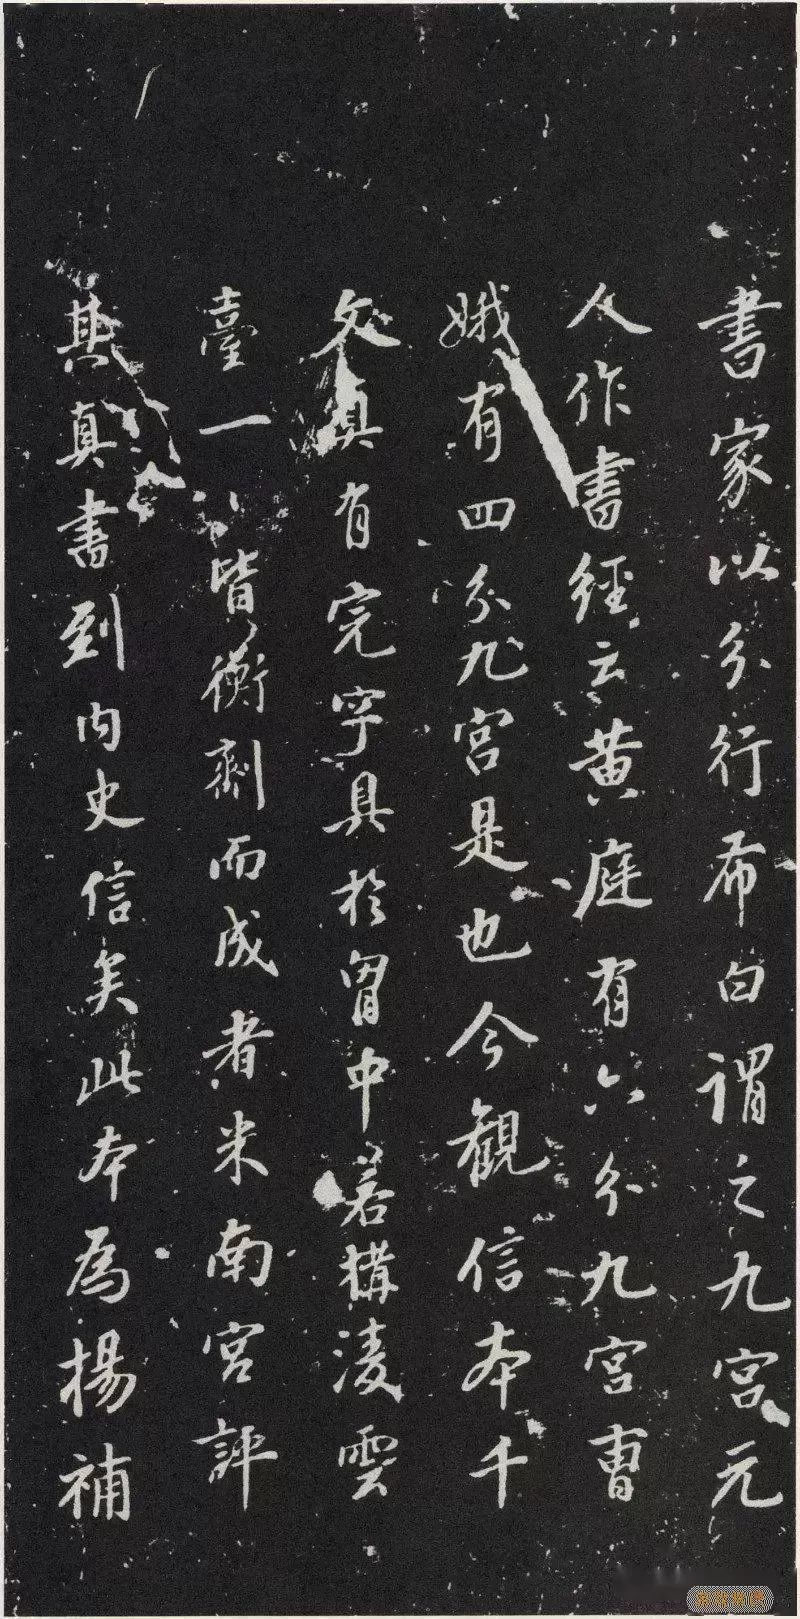 書家以分行布白謂之九宮元
人作書經云黃庭有六分九宮曹
娥有四分九宮是也今觀信本千
文真有完字具於胷中若構凌雲
臺一皆衡劑而成者米南宮評
其真書到內史信矣此本為楊補